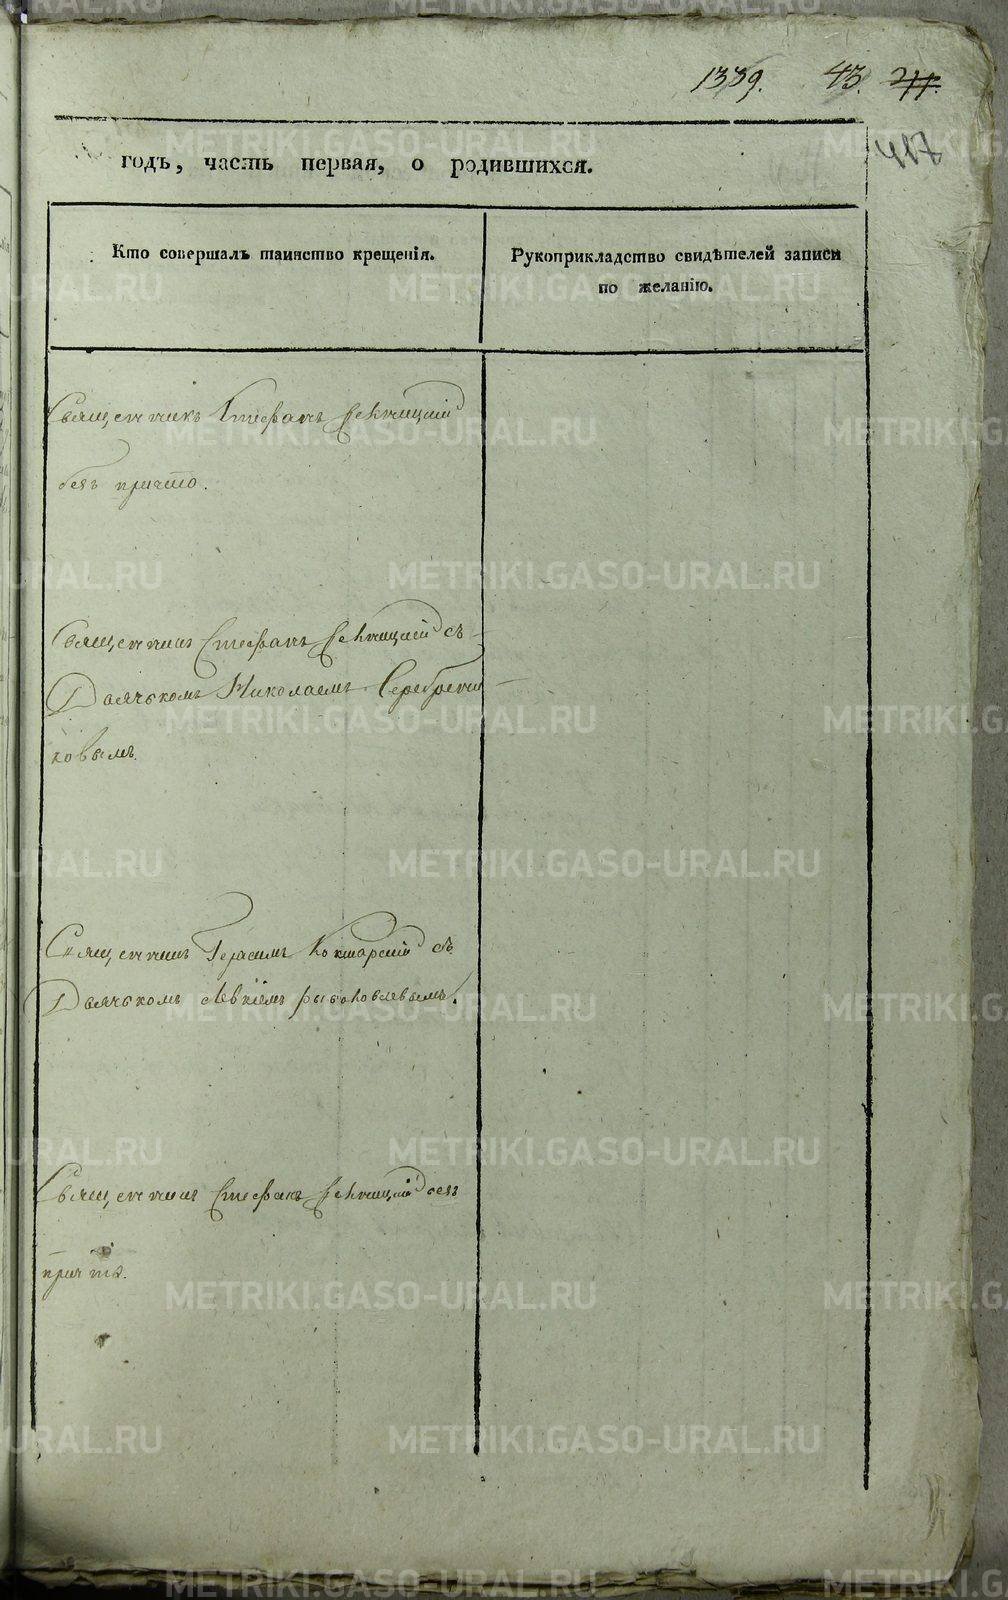 1339. 43.
годъ, часть первая, о родившихся.
417
Кто совершалъ таинство крещенія.
Рукоприкладство свидѣтелей записи
по желанію.
Священникъ Стефанъ
безъ причта.
Священникъ Стефанъ съ
Дьячькомъ Николаемъ Серебрени
ковымъ.
Священникъ Герасимъ Кокшарскій съ
Дьячькомъ
Священникъ Стефанъ безъ
причта.
METRIKI.GASO-URAL.RU